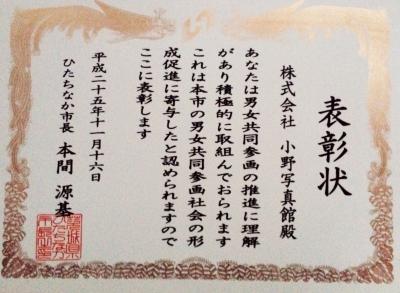 表彰状
株式会社 小野写真館殿
あなたは男女共同参画の推進に理解
があり積極的に取組んでおられます
これは本市の男女共同参画社会の形
成促進に寄与したと認められますので
ここに表彰します
平成二十五年十一月十六日
ひたちなか市長 本間 源基